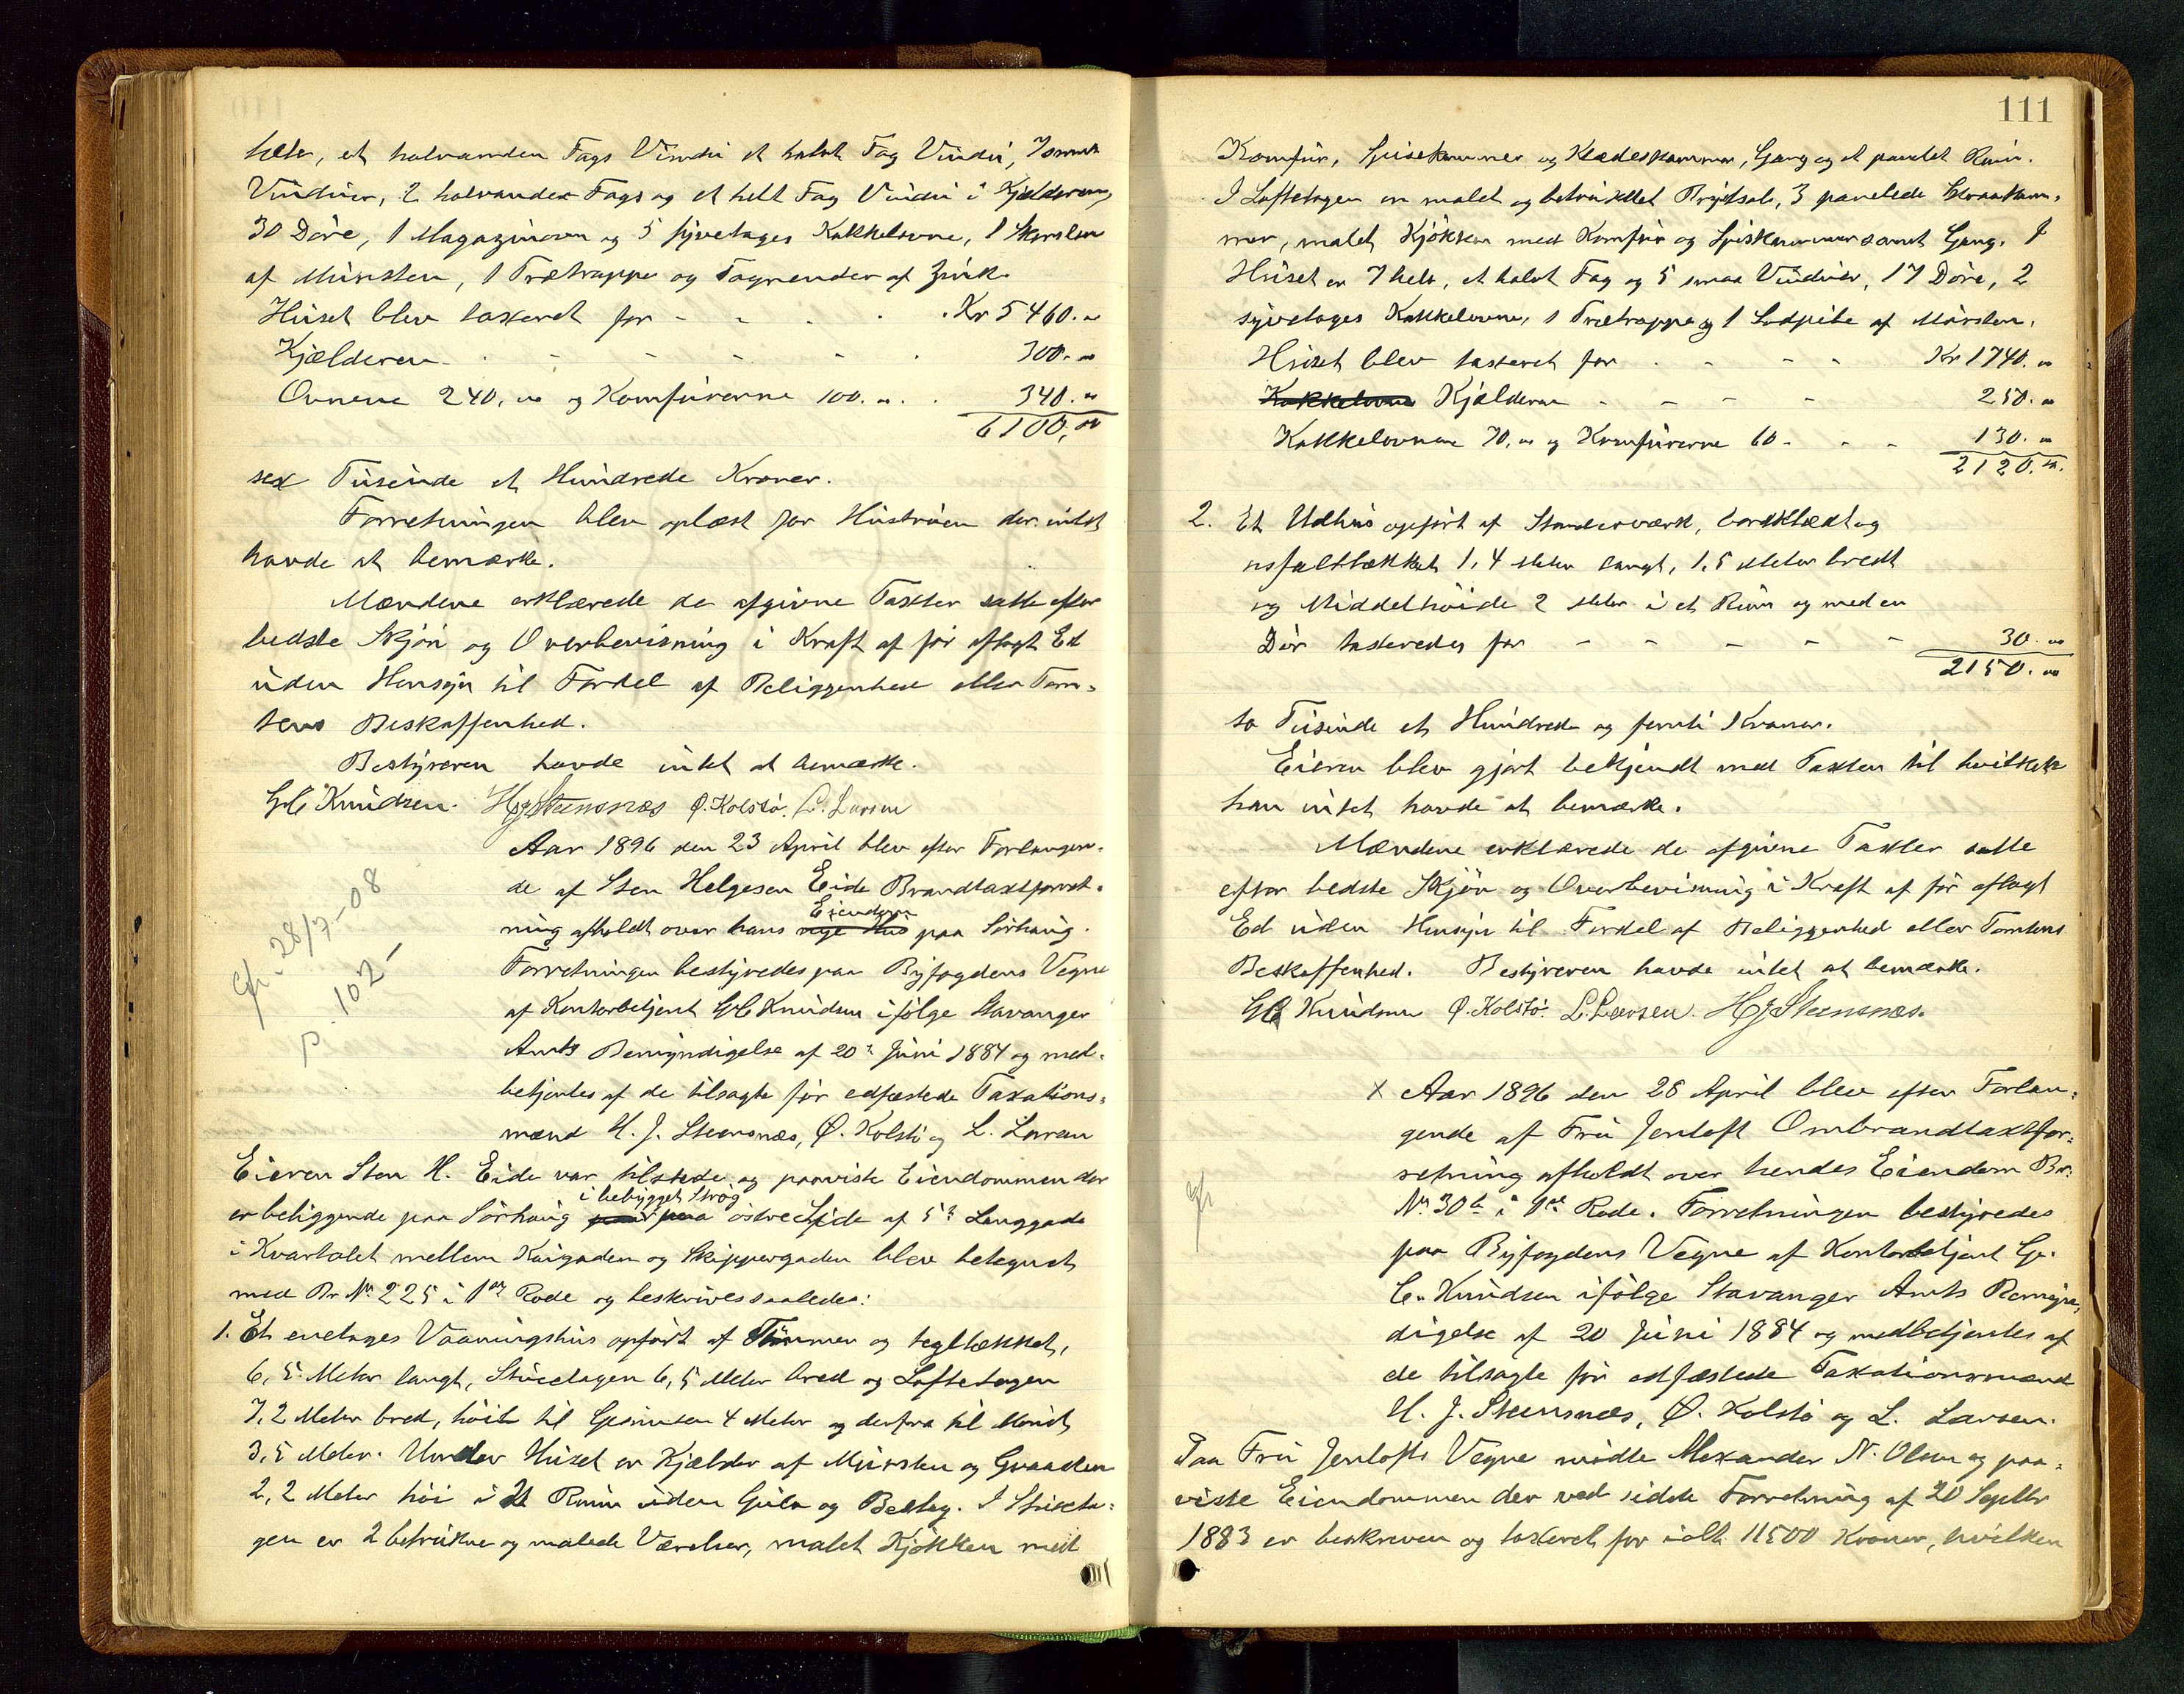 hele, et halvanden Fags Vindu et halvt Fag Vindu, 7 smaa
Vinduer, 2 halvanden Fags og et helt Fag Vindu i Kjælderen,
30 Döre, 1 Magazinovn og 5 syvetages Kakkelovne, 1 Skorsten
af Mursten, 1 Trætrappe og Tagrender af Zink.
Huset blev taxeret for - - - Kr 5460.00
Kjælderen - - - - 300.00
Ovnene 240.00 og Komfurerne 100.00 . 340.00
6100.00
sex Tusinde et Hundrede Kroner.
Forretningen blev oplæst for Hustruen der intet
havde at bemærke.
Mændene erklærede de afgivne Taxter satte efter
bedste Skjön og Overbevisning i Kraft af för aflagt Ed
uden Hensyn til Fordel af Beliggenhed eller Tom-
tens Beskaffenhed.
Bestyreren havde intet at bemærke.
G C Knudsen. H J Steensnæs Ø. Kolstö. L. Larsen
Aar 1896 den 23 April blev efter Forlangen-
de af Sten Helgesen Eide Brandtaxtforret-
Eiendom
ning afholdt over hans nye Hus paa Sörhaug.
Forretningen bestyredes paa Byfogdens Vegne
af Kontorbetjent G C Knudsen ifölge Stavanger
Amts Bemyndigelse af 20de Juni 1884 og med-
betjentes af de tilsagte för edfæstede Taxations-
mænd H. J. Steensnæs, Ø. Kolstö og L. Larsen
cfr 28/7-08
p. 102-
Eieren Sten H. Eide var tilstede og paaviste Eiendommen der
i bebygget Strög
er beliggende paa Sörhaug paa östre Side af 5te Langgade
i Kvartalet mellem Kaigaden og Skippergaden blev betegnet
med Br No 225 i 1ste Rode og beskrives saaledes:
1. Et enetages Vaaningshus opfört af Tömmer og tegltækket,
6,5 Meter langt, Stueetagen 6,5 Meter bred og Loftetagen
7,2 Meter bred, höit til Gesimsen 4 Meter og derfra til Mönet
3,5 Meter. Under Huset er Kjælder af Mursten og Graasten
2,2 Meter höi i et Rum uden Gulv og Beslag. I Stueeta-
gen er 2 betrukne og malede Værelser, malet Kjökken med
111
Komfur, Spisekammer og Klædeskammer, Gang og et panelet Rum.
I Loftetagen er malet og betrukket Brystsal, 3 panelede Skraakam-
mer, malet Kjökken med Komfur og Spiskammer samt Gang. I
Huset er 7 hele, et halvt Fag og 5 smaa Vinduer, 17 Döre, 2
syvetages Kakkelovne, 1 Trætrappe og 1 Sodpibe af Mursten.
Huset blev taxeret for - - - Kr 1740.00
Kakkelovne Kjælderen - - - - 250.00
Kakkelovnene 70.00 og Komfurerne 60 - - - 130.00
2120.00
2. Et Udhus opfört af Standerværk, bordklædt og
asfalttækket 1,4 Meter langt, 1,5 Meter bredt
og Middelhöide 2 Meter i et Rum og med en
Dör taxeredes for - - - - - 30.00
2150.00
to Tusinde et Hundrede og femti Kroner.
Eieren blev gjort bekjendt med Taxten til hvilken
han intet havde at bemærke.
Mændene erklærede de afgivne Taxter satte
efter bedste Skjön og Overbevisning i Kraft af för aflagt
Ed uden Hensyn til Fordel af Beliggenhed eller Tomtens
Beskaffenhed. Bestyreren havde intet at bemærke.
G C Knudsen Ø. Kolstö. L. Larsen. H J Steensnæs.
x Aar 1896 den 28 April blev efter Forlan-
gende af Fru Jentoft Ombrandtaxtfor-
retning afholdt over hendes Eiendom Br.
No 30b i 1ste Rode. Forretningen bestyredes
paa Byfogdens Vegne af Kontorbetjent G.
C. Knudsen ifölge Stavanger Amts Bemyn-
digelse af 20 Juni 1884 og medbetjentes af
de tilsagte för edfæstede Taxationsmænd
H. J. Steensnæs, Ø. Kolstö og L. Larsen.
cfr
Paa Fru Jentofts Vegne mödte Alexander N. Olsen og paa-
viste Eiendommen der ved sidste Forretning af 20 Septbr
1883 er beskreven og taxeret for ialt 11500 Kroner, hvilken